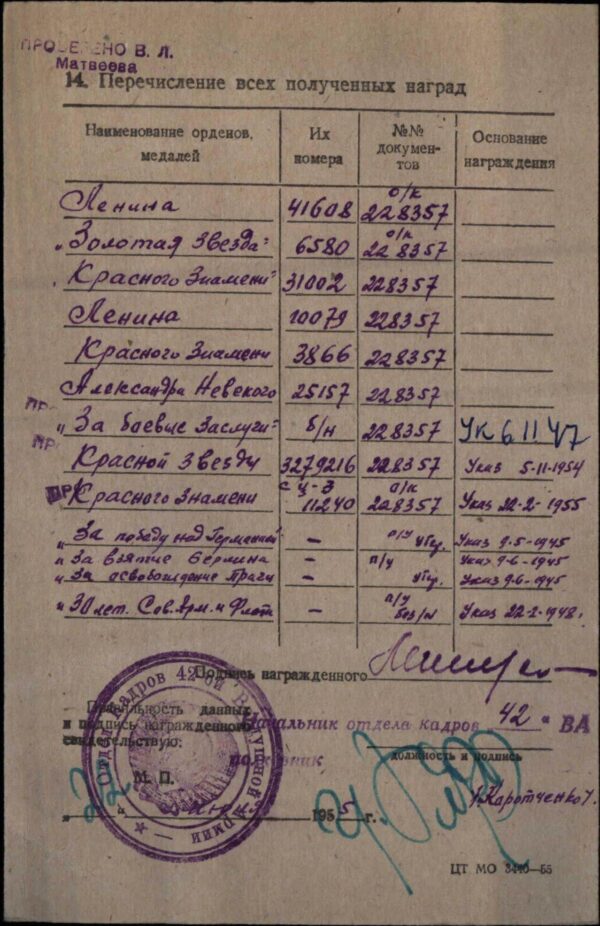 ПРОВЕРЕНО В. Л.
Матвеева
14. Перечисление всех полученных наград
Наименование орденов, медалей | Их номера | №№ документов | Основание награждения
Ленина 41608 о/к 228357
„Золотая Звезда" 6580 о/к 228357
Красного Знамени" 31002 228357
Ленина 10079 228357
Красного Знамени 3866 228357
Александра Невского 25157 228357
ПР.
„За боевые Заслуги" б/н 228357 УК 6 11 47
ПР.
Красной Звезды 3279216 228357 Указ 5-11-1954
ПР.
Красного Знамени 11240 о/к 228357 Указ 22-2-1955
„За победу над Германией" – Указ 9-5-1945
„За взятие Берлина – п/у Указ 9-6-1945
„За освобождение Праги – Указ 9-6-1945
„30 лет. Сов. Арм. и Флота – п/у без/н Указ 22-2-1948г
Подпись награжденного
Правильность данных
и подпись награжденного
свидетельствую:
Начальник отдела кадров 42 " ВА
полковник
должность и подпись
М. П.
/Каротченко/.
22
1955 г.
Отдел кадров 42-ой Воздушной Армии
ЦТ МО 3440—55